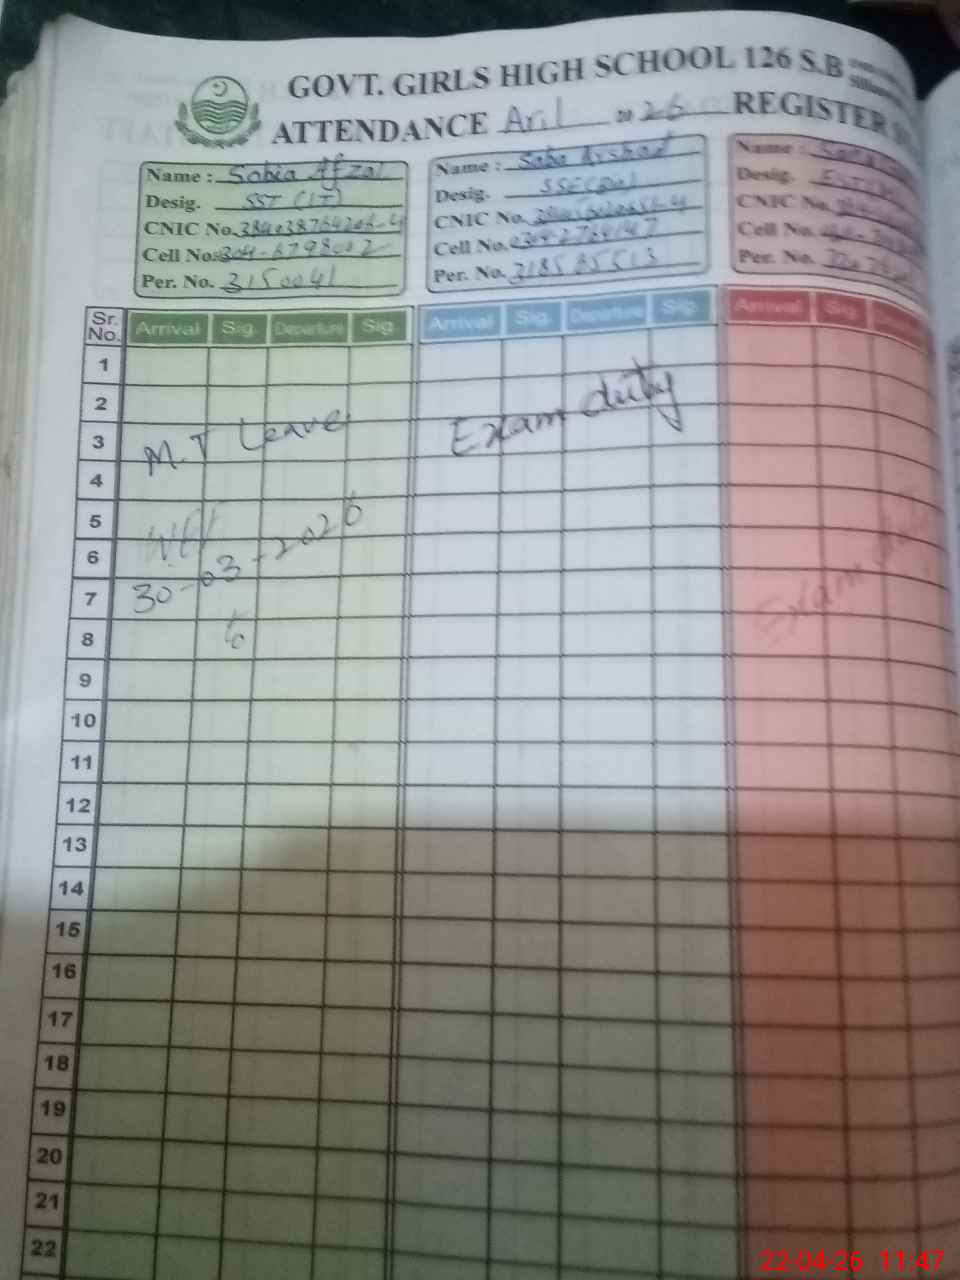 GOVT. GIRLS HIGH SCHOOL 126 S.B
ATTENDANCE Aril 2026 REGISTER
Name : Sobia Afzal
Desig. SST (IT)
CNIC No.
Cell No.
Per. No. 3150041
Name : Saba Arshad
Desig.
CNIC No.
Cell No. 0304-2764147
Per. No. 318585513
Name :
Desig.
CNIC No.
Cell No.
Per. No.
Sr. No. Arrival Sig. Departure Sig. Arrival Sig. Departure Sig. Arrival Sig.
1
2
3 M.T Leave Exam duty
4
5
6 Wef
7 30-03-2026
8 to
Exam
9
10
11
12
13
14
15
16
17
18
19
20
21
22
22-04-26 11:47